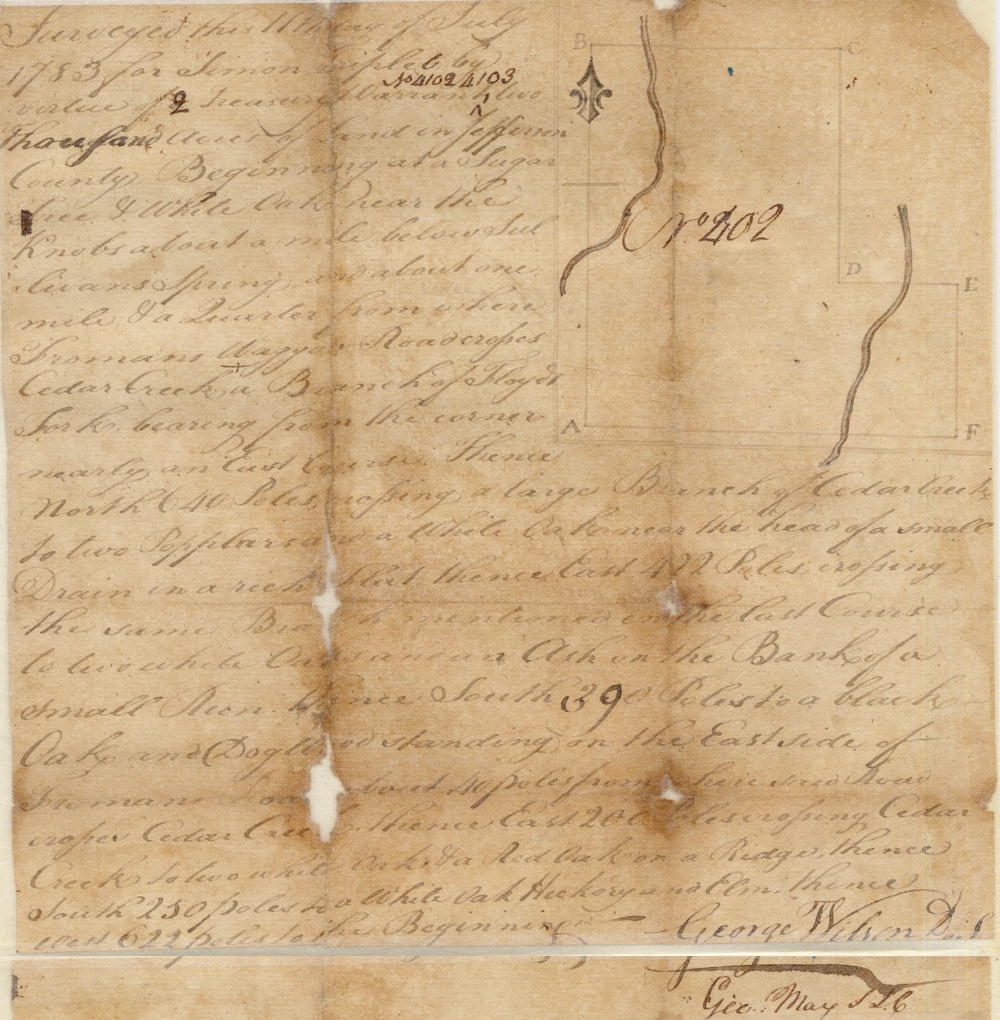 Surveyed this 11th day of July
1783 for Simon Triplet by
No 4102 4103
virtue of 2 Treasury Warrants two
Thousand Acres of Land in Jefferson
County Beginning at a Sugar
tree & White Oak near the
Knobs about a mile below Sul
livans Spring and about one
mile & a Quarter from where
Fromans Waggon Road crosses
Cedar Creek a Branch of Floyds
Fork bearing from the corner
nearly an East Course. Thence
North 640 Poles crossing a large Branch of Cedar Creek
to two Popplars and a White Oak near the head of a small
Drain in a rich flat thence East 422 Poles crossing
the same Branch mentioned in the last Course
to two white Oaks and an Ash on the Bank of a
small Run. thence South 390 Poles to a black
Oak and Dogwood standing on the East side of
Fromans Road about 40 poles from where said Road
crosses Cedar Creek. thence East 200 Poles crossing Cedar
Creek to two white Oaks & a Red Oak on a Ridge, thence
South 250 poles to a White Oak Hickory and Elm. thence
West 622 poles to the Beginning
George Wilson
Geo. May SJC
B
C
No 202
D
E
A
F